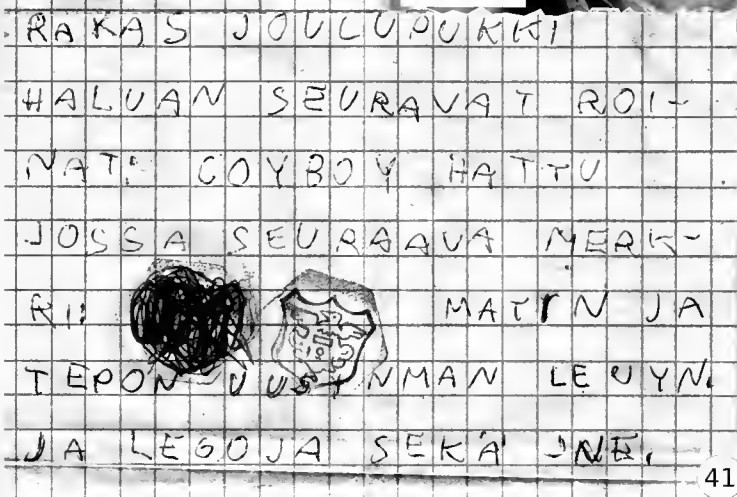 RAKAS JOULUPUKKI
HALUAN SEURAVAT ROI-
NAT: COYBOY HATTU
JOSSA SEURAAVA MERK-
RI: MATIN JA
TEPON UUSINMAN LEVYN.
JA LEGOJA SEKÄ JNE.
41